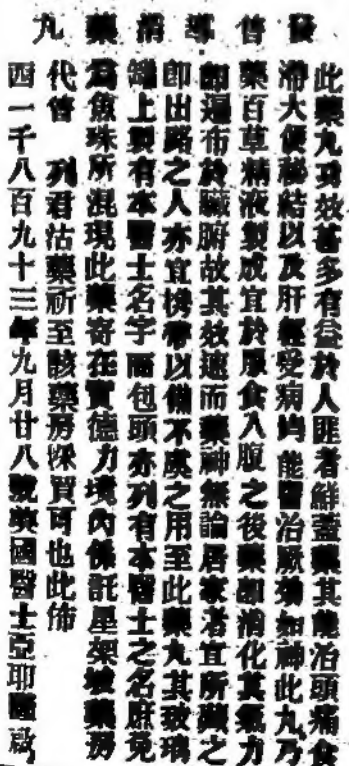 發售導滯藥丸
此藥丸功效甚多有益於人匪者鮮蓋藥其能治頭痛食
滯大便秘結以及肝經受病均能醫治厥効如神此丸乃
藥百草精液製成宜於厚食入腹之後藥即消化其氣力
即遍布於臟腑故其效速而藥神無論居家者宜所藏之
即出路之人亦宜携帶以備不虞之用至此藥丸其玻璃
罇上製有本醫士名字而包頭亦列有本醫士之名庶免
為魚珠所混現此藥寄在實德力境內係託星架坡藥房
代售 列君沽藥祈至該藥房採買可也此佈
西一千八百九十三年九月廿八號英國醫士亞耶 啟